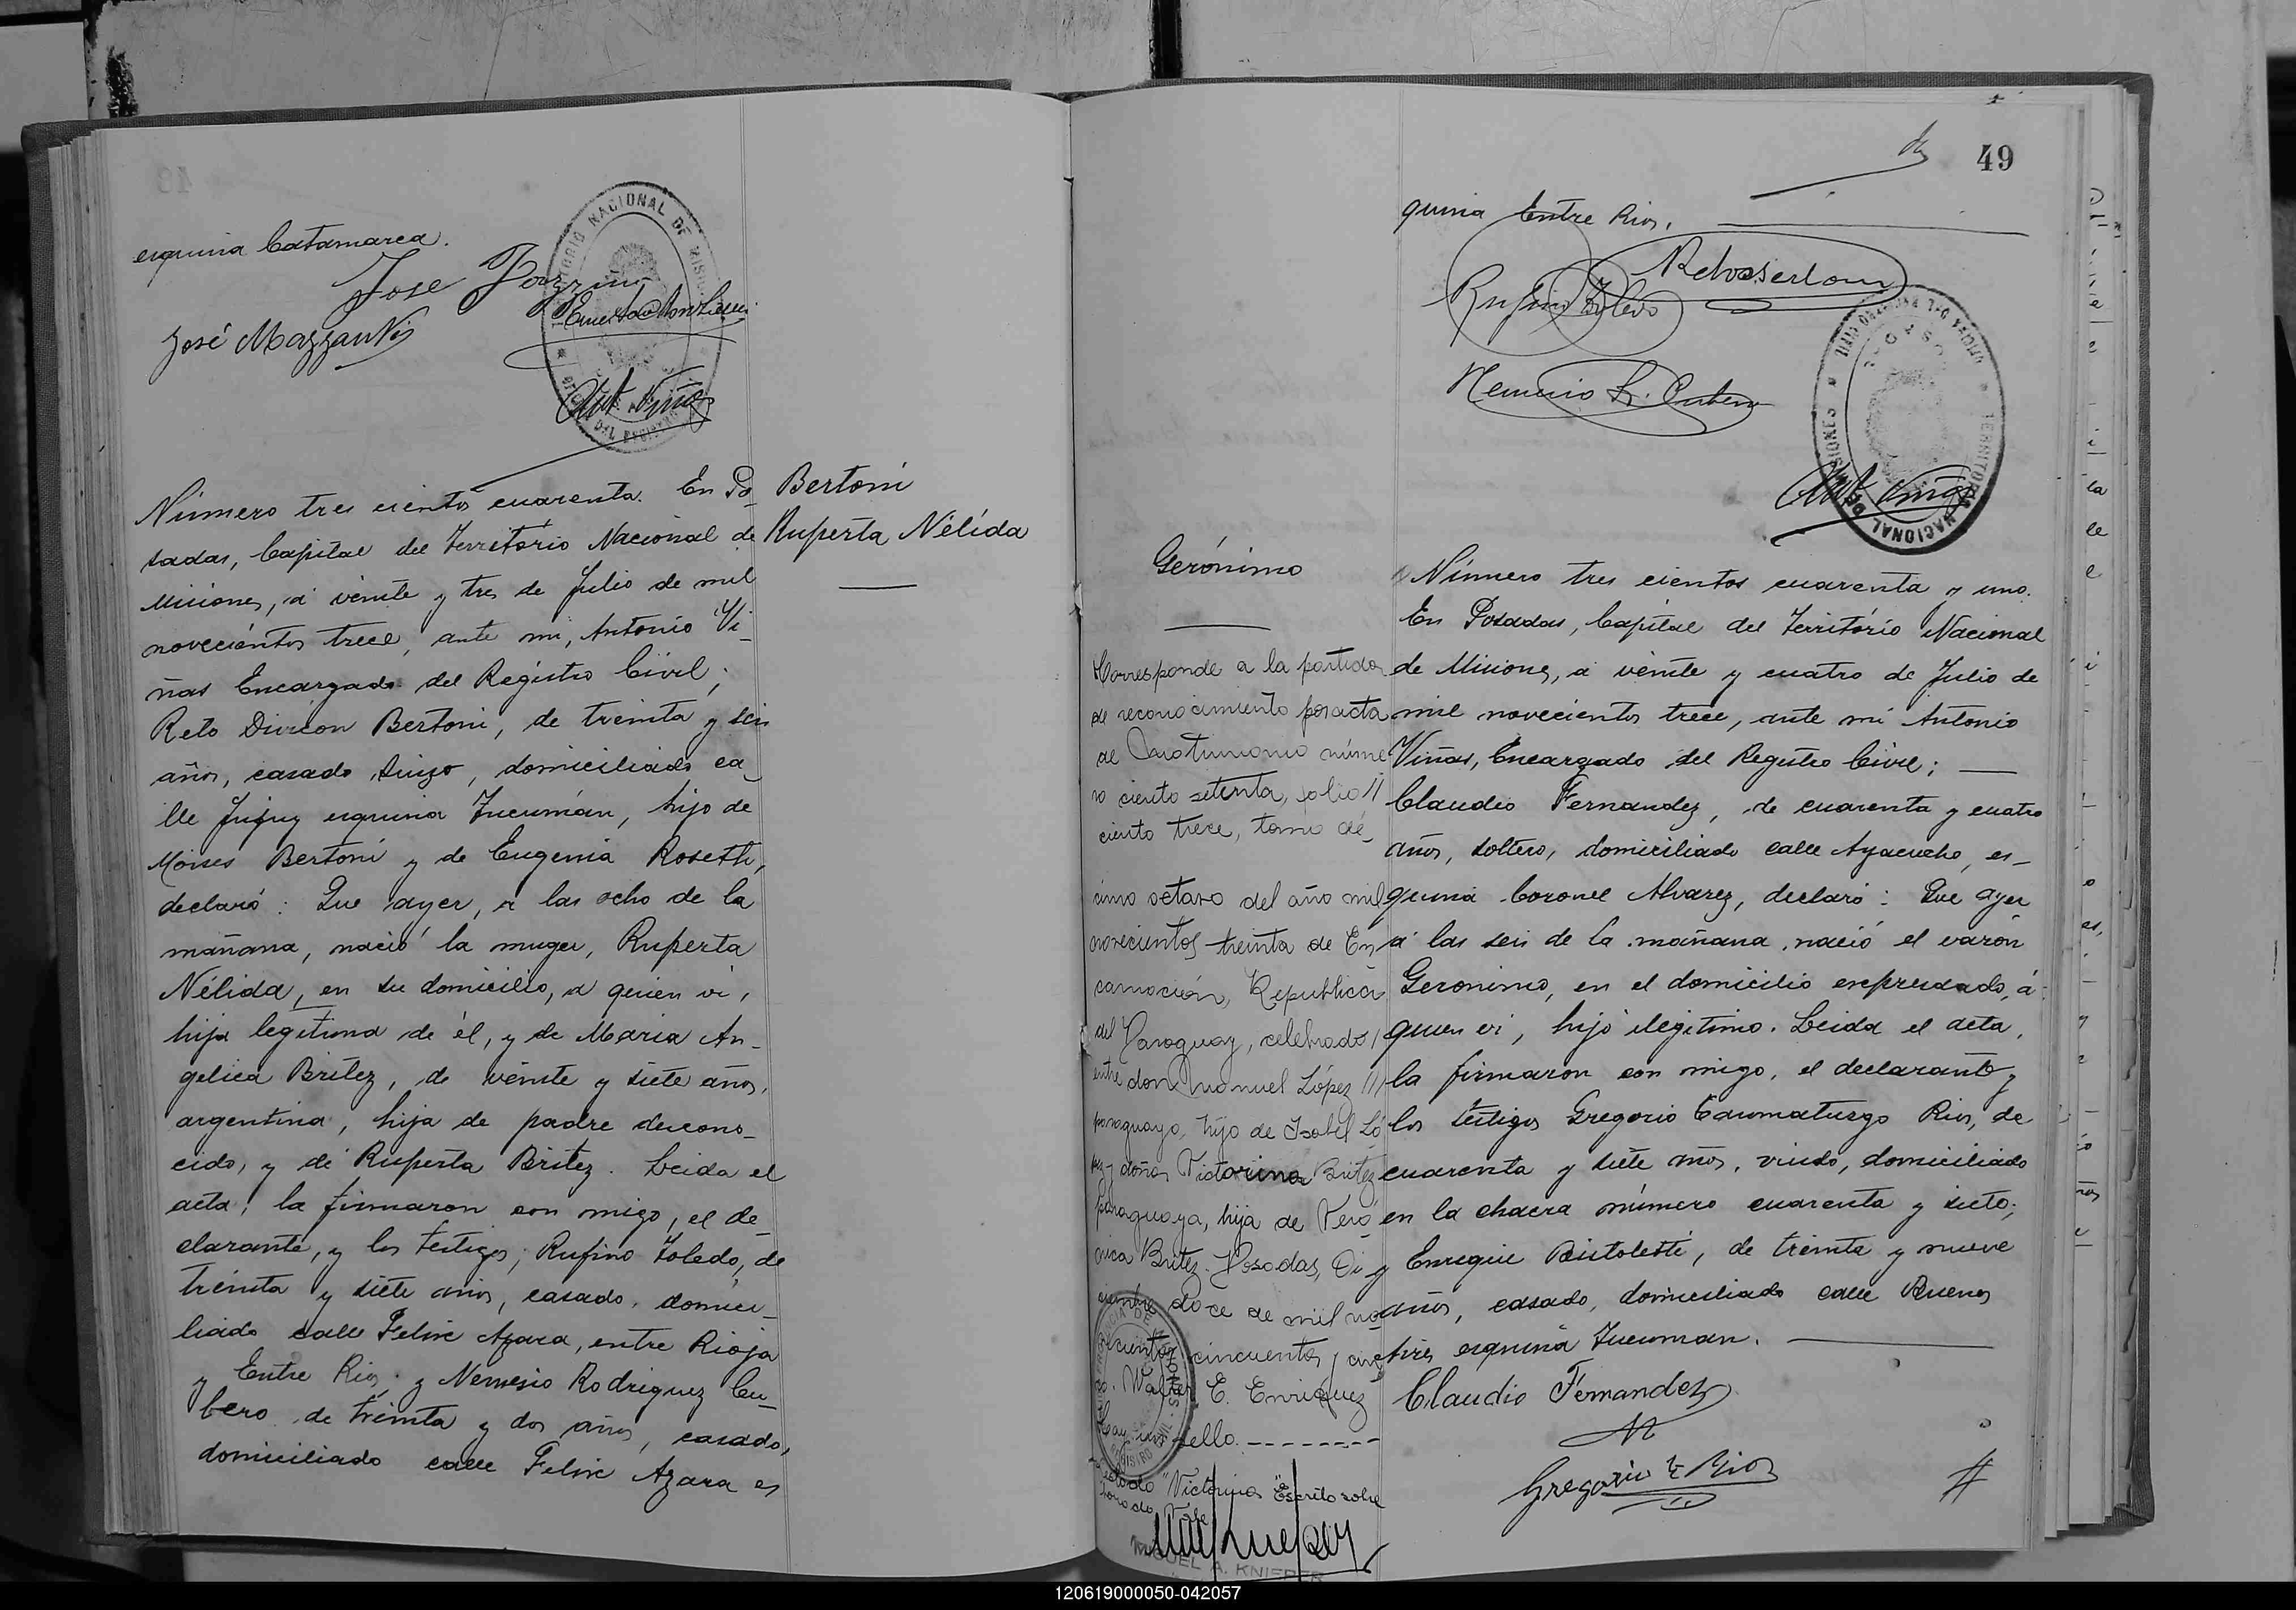 esquina Catamarca.
José Mazzanti
Ant Viñas
Número tres cientos cuarenta. En Po
sadas, Capital del Territorio Nacional de
Misiones, á veinte y tres de Julio de mil
novecientos trece, ante mi, Antonio Vi_
ñas Encargado del Registro Civil;
Reto Divicon Bertoni, de treinta y seis
años, casado, suizo, domiciliado ca_
lle Jujuy esquina Tucumán, hijo de
Moises Bertoni y de Eugenia Rosetti,
declaró: Que ayer, a las ocho de la
mañana, nació la muger, Ruperta
Nélida, en su domicilio, a quien vi,
hija legitima de él, y de Maria An_
gelica Britez, de veinte y siete años,
argentina, hija de padre descono_
cido, y de Ruperta Britez. Leida el
acta, la firmaron con migo, el de_
clarante, y los testigos; Rufino Toledo, de
treinta y siete años, casado, domici_
liado calle Felix Azara, entre Rioja
y Entre Rios y Nemesio Rodriguez Cu_
bero, de treinta y dos años, casado,
domiciliado calle Felix Azara es
Bertoni
Ruperta Nélida
49
quina Entre Rios.
Ant Viñas
Gerónimo
Corresponde a la partida
de reconocimiento por acta
de Matrimonio núme
ro ciento setenta, folio //
ciento trece, tomo dé_
cimo octavo del año mil
novecientos treinta de En
carnación, República
del Paraguay, celebrado /
entre don Manuel López ///
paraguayo, hijo de Isabel Ló
pez y doña Victorina Britez
paraguaya, hija de Veró
nica Britez. Posadas, Di
ciembre doce de mil no
vecientos cincuenta y cinc
o. Walter E. Enriquez
Hay un sello. --------
"Victorina" Escrito sobre
MIGUEL A. KNIEPER
Número tres cientos cuarenta y uno.
En Posadas, Capital del Territorio Nacional
de Misiones, á veinte y cuatro de Julio de
mil novecientos trece, ante mi Antonio
Viñas, Encargado del Registro Civil;
Claudio Fernandez, de cuarenta y cuatro
años, soltero, domiciliado calle Ayacucho, es_
quina Coronel Alvarez, declaró: Que ayer
á las seis de la mañana, nació el varón
Geronimo, en el domicilio expresado, á
quien vi, hijo ilegitimo. Leida el acta,
la firmaron con migo, el declarante y
los testigos Gregorio Taumaturgo Rios, de
cuarenta y siete años, viudo, domiciliado
en la chacra número cuarenta y siete;
y Enrique Bistoletti, de treinta y nueve
años, casado, domiciliado calle Buenos
Aires esquina Tucuman.
Claudio Fernandez
Gregorio T Rios
120619000050-042057